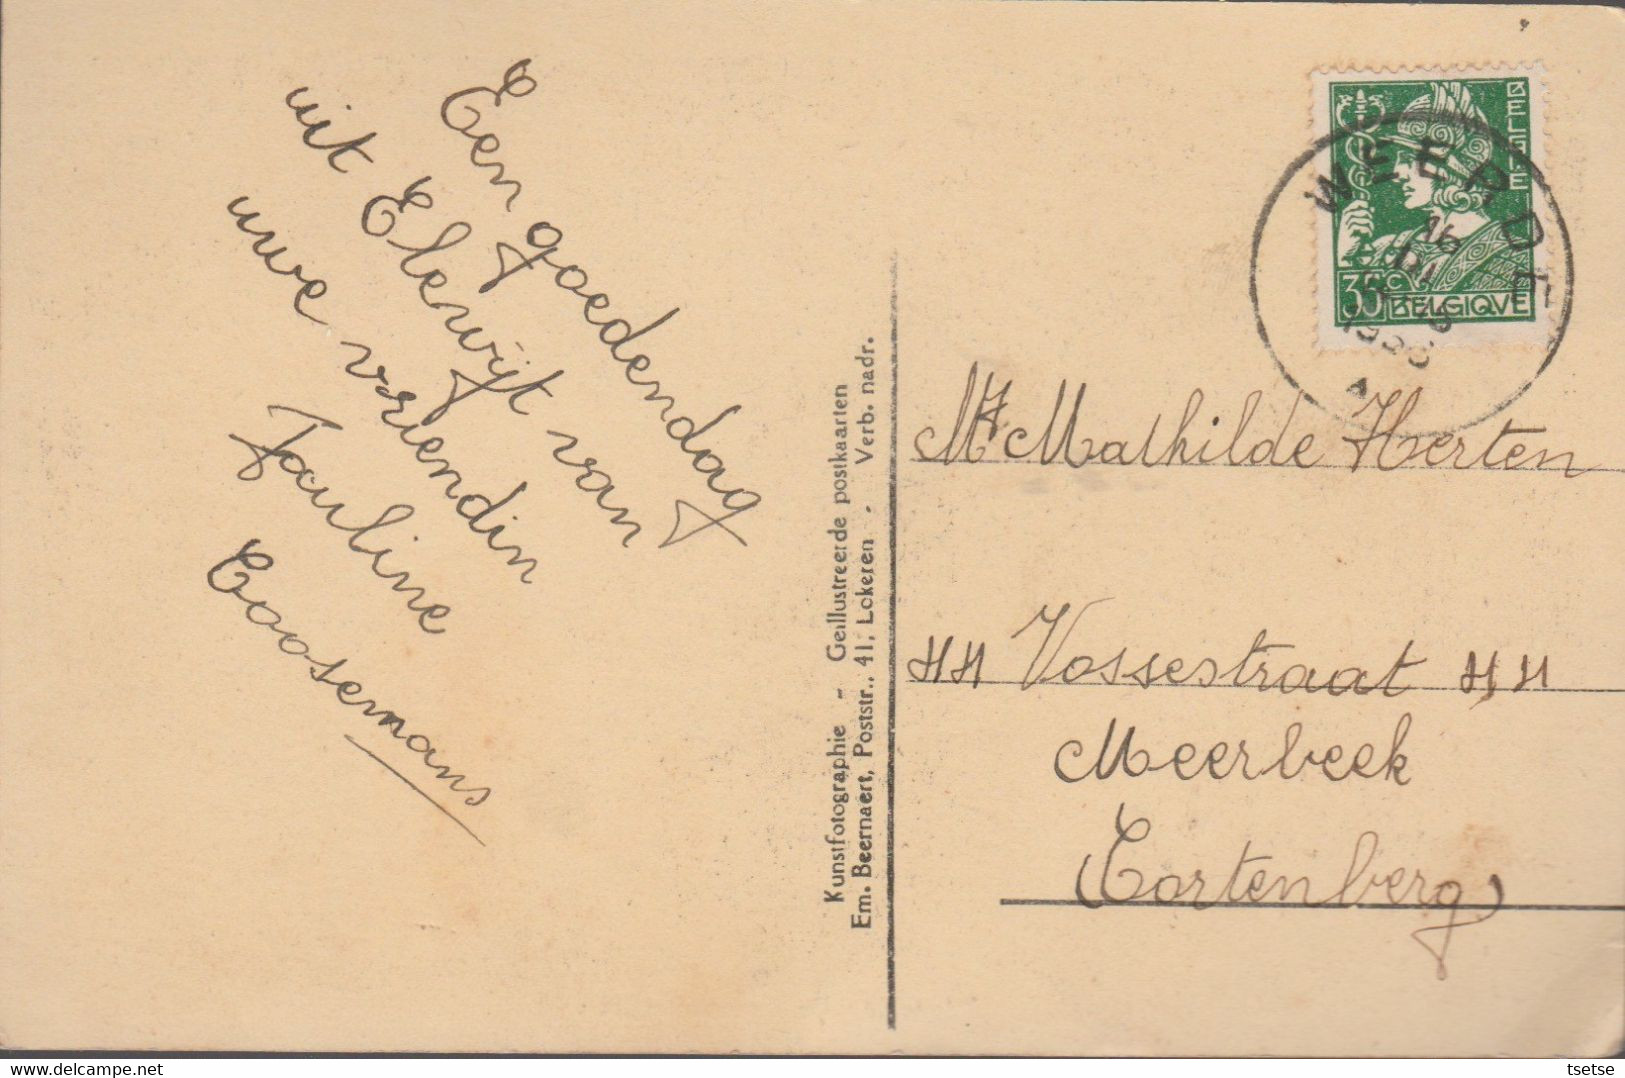 Een goedendag
uit Elewijt van
uwe vriendin
Pauline
Coosemans
Kunstfotographie - Geïllustreerde postkaarten
Em. Beernaert, Poststr., 41, Lokeren - Verb. nadr.
BELGIE
35 C BELGIQVE
WEERDE
16
1936
Mathilde Herten
HH Vossestraat HH
Meerbeek
(Cortenberg)
tsetse